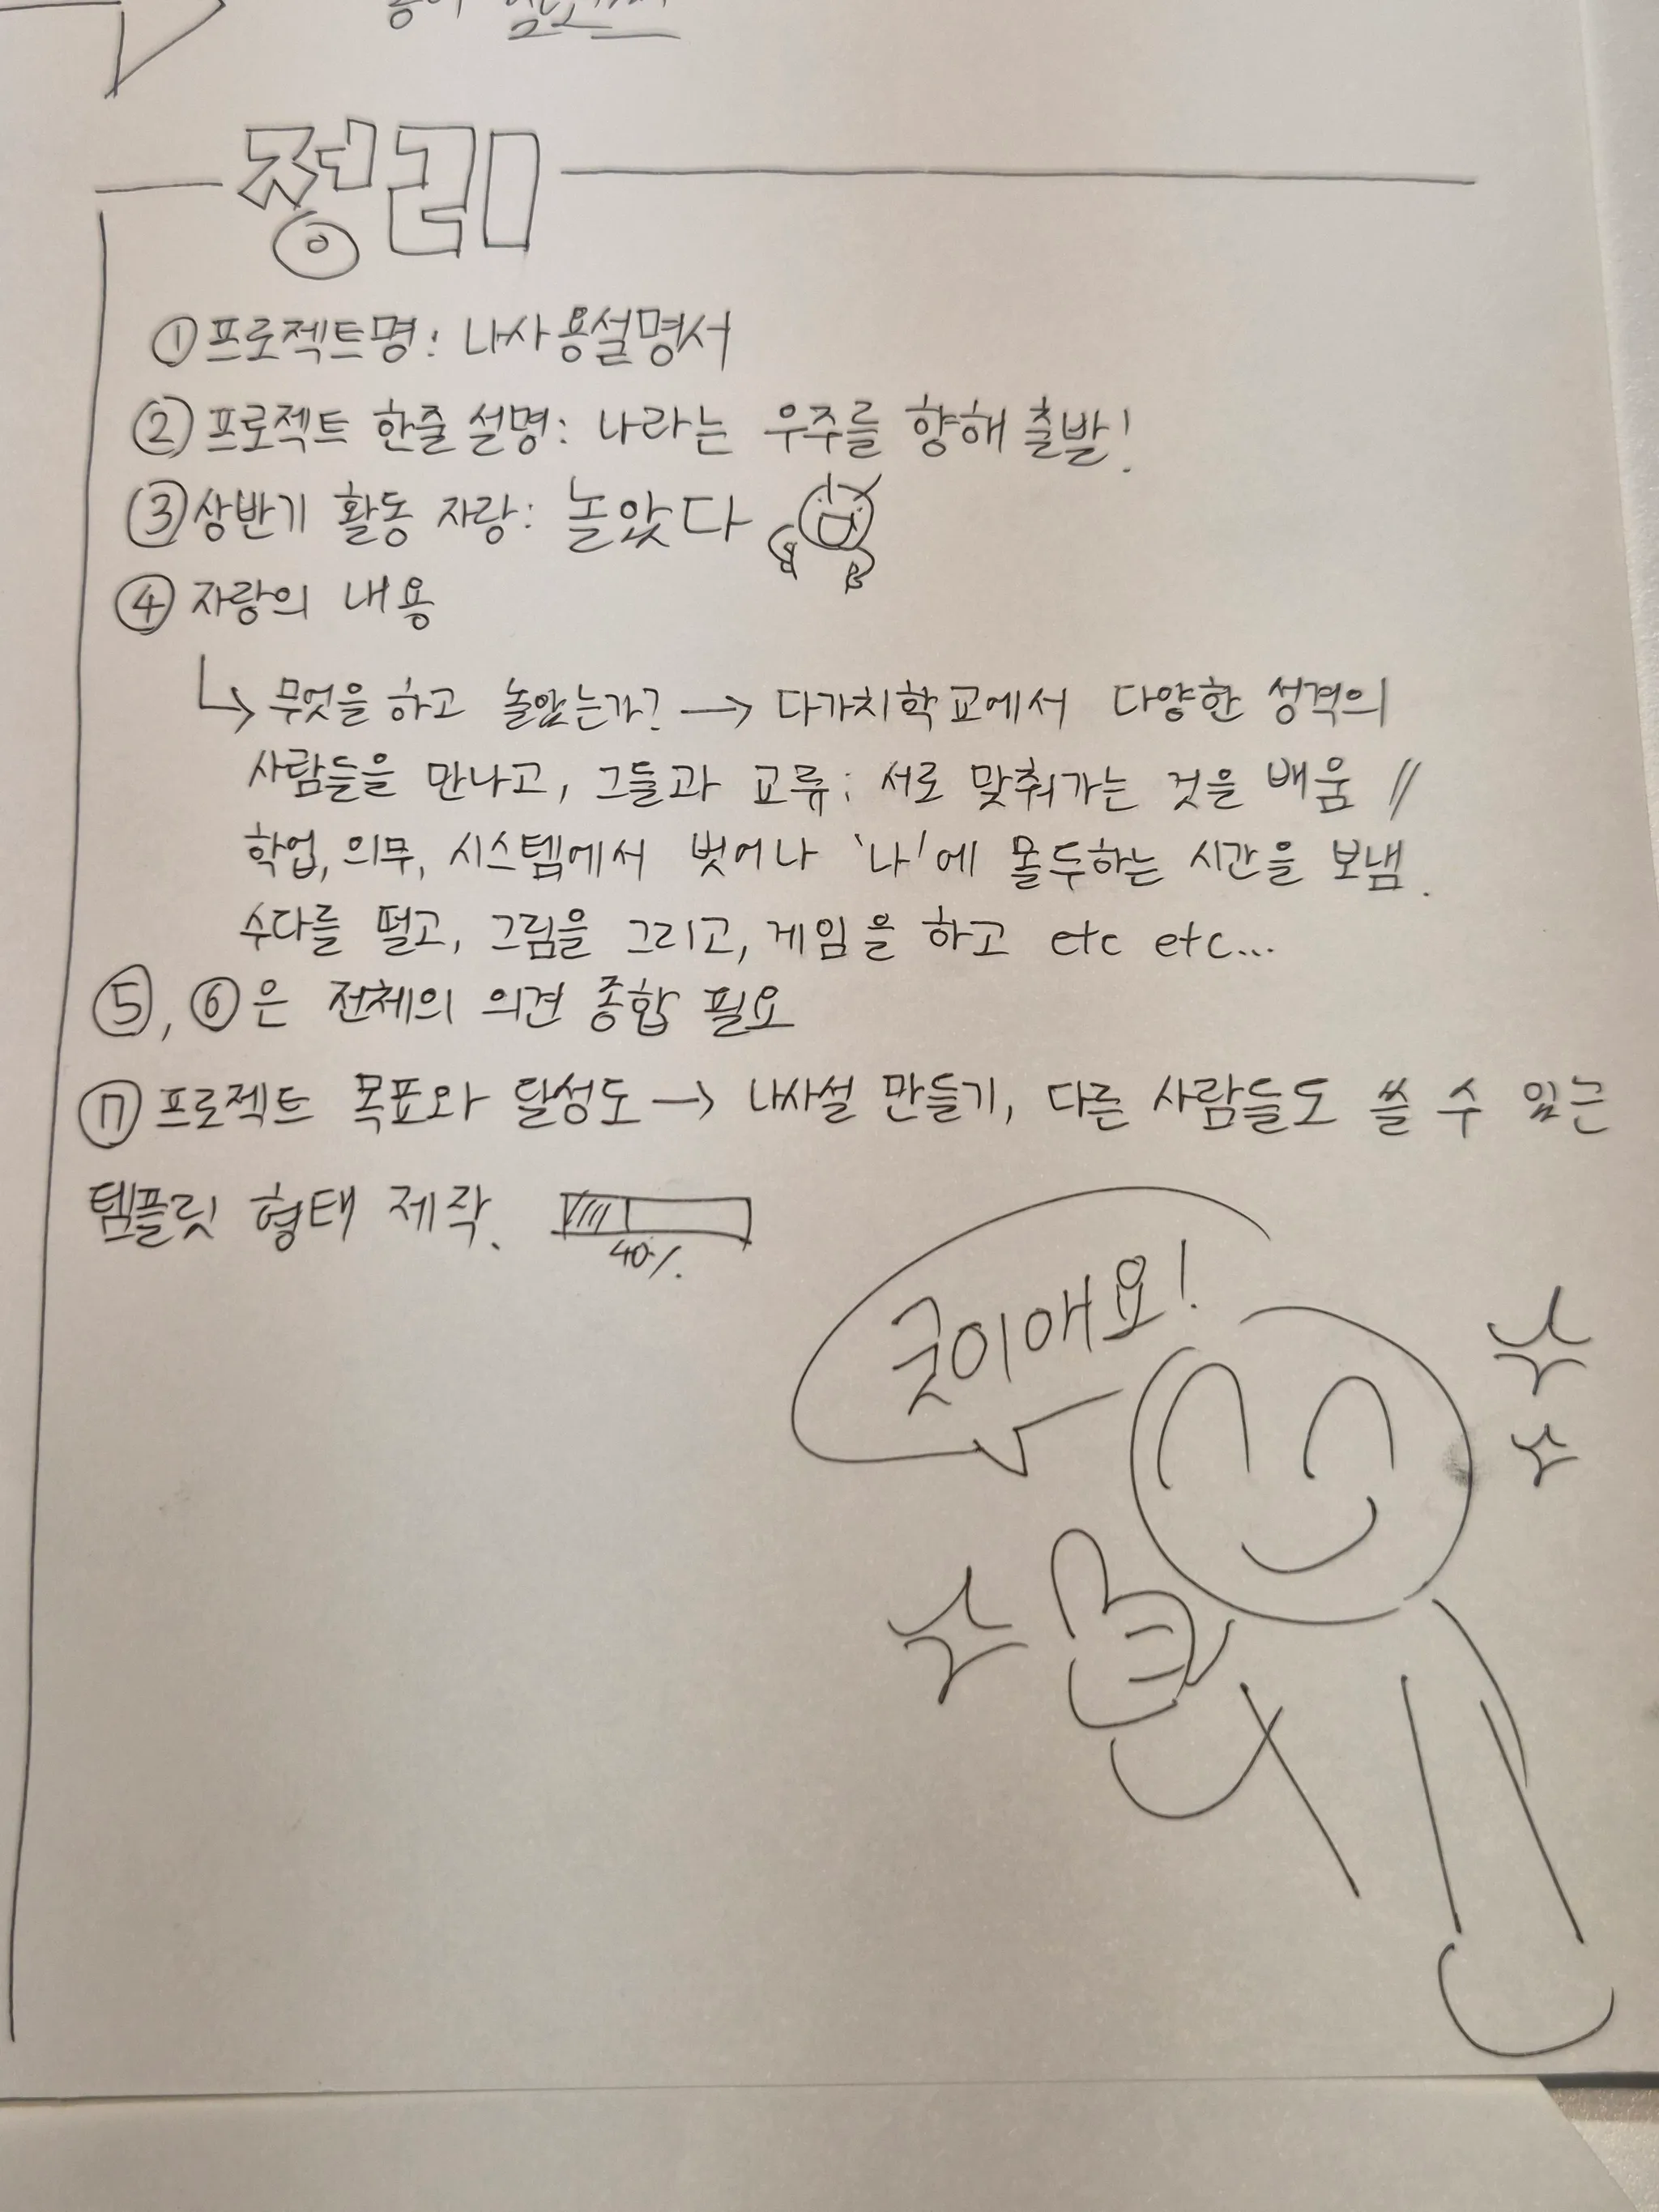 정리
① 프로젝트명: 나사용설명서
② 프로젝트 한줄 설명: 나라는 우주를 향해 출발!
③ 상반기 활동 자랑: 놀았다
④ 자랑의 내용
↳ 무엇을 하고 놀았는가? → 다가치학교에서 다양한 성격의
사람들을 만나고, 그들과 교류: 서로 맞춰가는 것을 배움 //
학업, 의무, 시스템에서 벗어나 '나'에 몰두하는 시간을 보냄.
수다를 떨고, 그림을 그리고, 게임을 하고 etc etc...
⑤, ⑥은 전체의 의견 종합 필요
⑦ 프로젝트 목표와 달성도 → 나사설 만들기, 다른 사람들도 쓸 수 있는
템플릿 형태 제작.
40%
굿이애요!